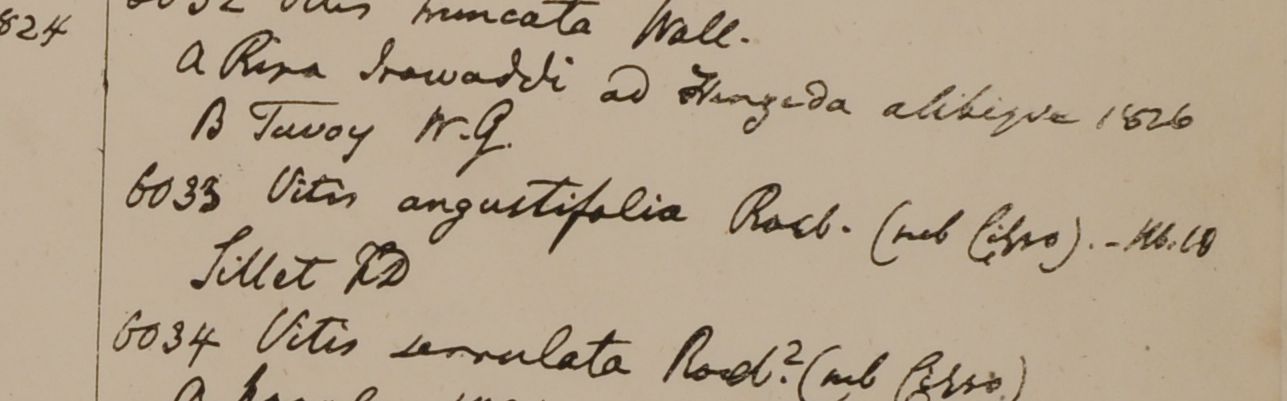 824
6032 Vitis truncata Wall.
A Ripa Irawaddi ad Hengeda alibique 1826
B Tavoy W.G.
6033 Vitis angustifolia Roxb. (sub Cisso). - Hb.
Sillet FD
6034 Vitis serrulata Roxb.? (sub Cisso)